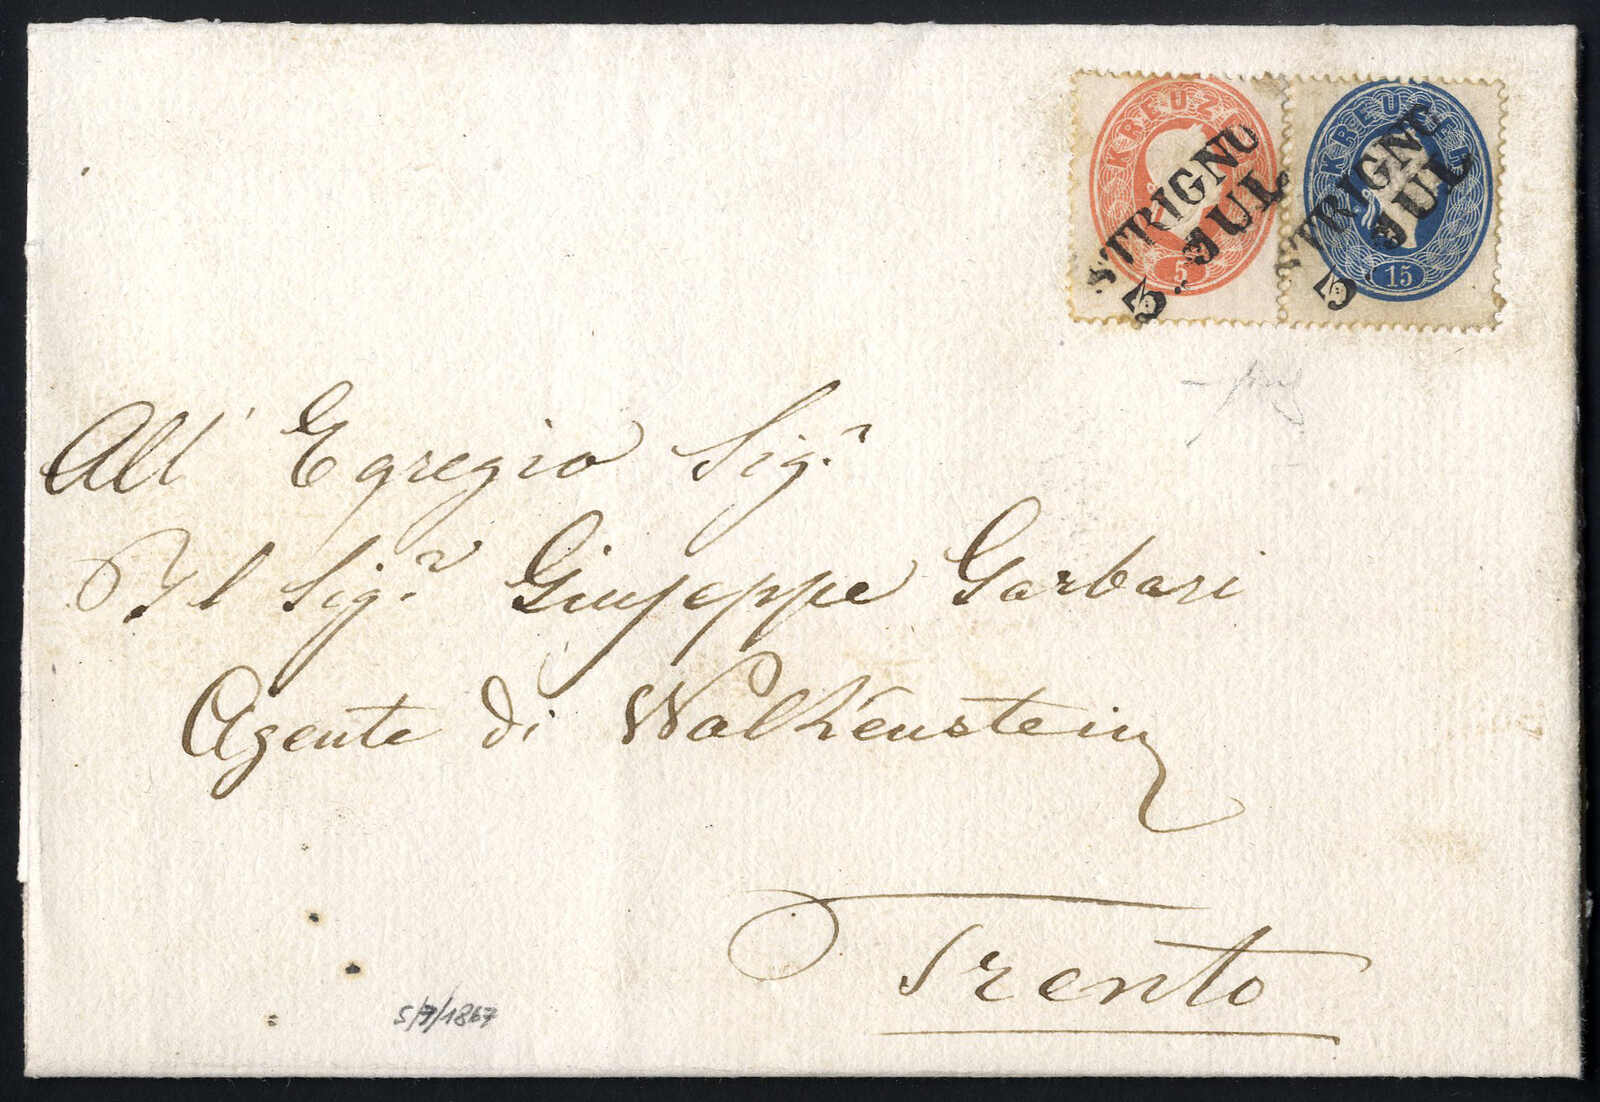 KREUZER KREUZER
5 15
STRIGNO STRIGNO
5. JUL. 5. JUL.
All' Egregio Sigr.
Il Sigr. Giuseppe Garbari
Agente di Walkenstein
Trento
5/7/1867